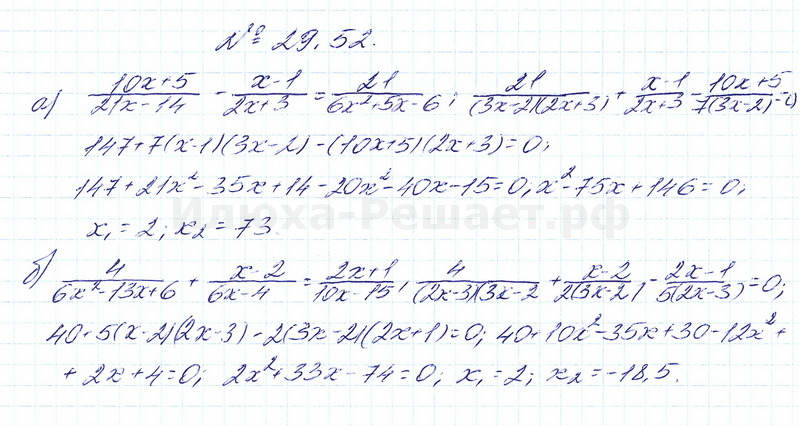 № 29.52.
а) (10x+5)/(21x-14) - (x-1)/(2x+3) = 21/(6x²+5x-6); 21/((3x-2)(2x+3)) + (x-1)/(2x+3) - (10x+5)/(7(3x-2)) = 0
147+7(x-1)(3x-2)-(10x+5)(2x+3)=0;
147+21x²-35x+14-20x²-40x-15=0, x²-75x+146=0;
x₁=2; x₂=73.
Илюха-Решает.рф
б) 4/(6x²-13x+6) + (x-2)/(6x-4) = (2x+1)/(10x-15), 4/((2x-3)(3x-2) + (x-2)/(2(3x-2)) - (2x-1)/(5(2x-3)) = 0;
40+5(x-2)(2x-3)-2(3x-2)(2x+1)=0; 40+10x²-35x+30-12x²+
+2x+4=0; 2x²+33x-74=0; x₁=2; x₂=-18,5.